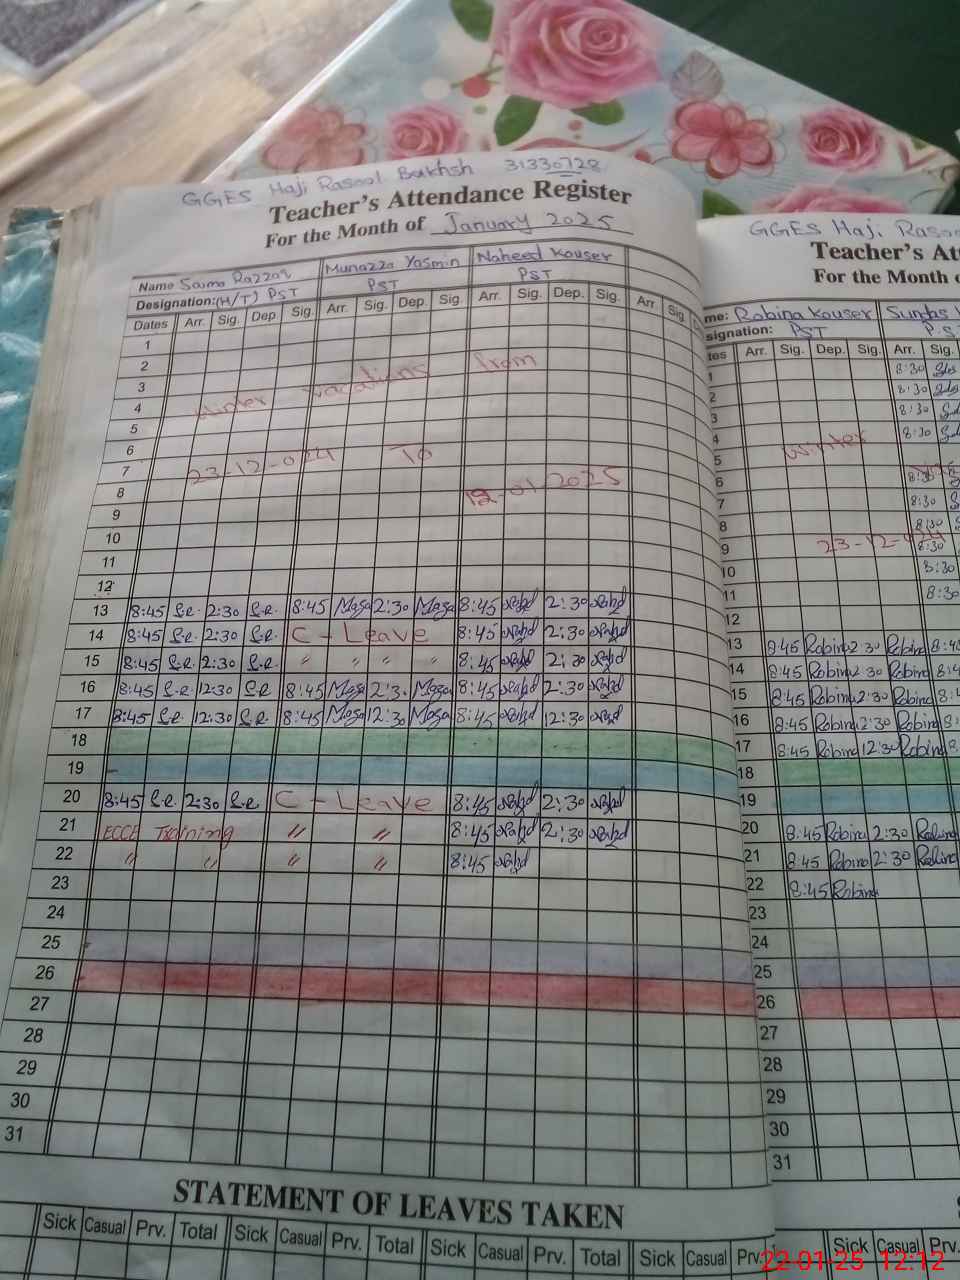 GGES Haji Rasool Bakhsh 31330728
Teacher's Attendance Register
For the Month of January 2025
Name Saima Razzaq Munazza Yasmin Naheed Kouser
Designation:(H/T) PST PST PST
Dates Arr. Sig. Dep. Sig. Arr. Sig. Dep. Sig. Arr. Sig. Dep. Sig. Arr. Sig.
1
2
3
4
5
6
7
8
9
10
11
12
winter vacations from
23-12-024 To
12-01-2025
13 8:45 S.R. 2:30 S.R. 8:45 2:30 8:45 2:30
14 8:45 S.R. 2:30 S.R. C - Leave 8:45 2:30
15 8:45 S.R. 2:30 S.R. " " " " 8:45 2:30
16 8:45 S.R. 12:30 S.R. 8:45 2:3. 8:45 2:30
17 8:45 S.R. 12:30 S.R. 8:45 12:30 8:45 12:30
18
19
20 8:45 S.R. 2:30 S.R. C - Leave 8:45 2:30
21 ECCE Training " " 8:45 2:30
22 " " " " 8:45
23
24
25
26
27
28
29
30
31
STATEMENT OF LEAVES TAKEN
Sick Casual Prv. Total Sick Casual Prv. Total Sick Casual Prv. Total Sick Casual Prv.
GGES Haji Rasoo
Teacher's At
For the Month o
me: Robina Kouser Sundas
signation: PST P.S.T
tes Arr. Sig. Dep. Sig. Arr. Sig.
1 8:30
2 8:30
3 8:30
4 8:30
5
6 8:30
7 8:30
8 8:30
9 8:30
10 8:30
11 8:30
12
winter
23-12-024
13 8:45 Robina 2:30 Robina 8:4
14 8:45 Robina 2:30 Robina 8:4
15 8:45 Robina 2:30 Robina 8:4
16 8:45 Robina 2:30 Robina 8:
17 8:45 Robina 12:30 Robina 8:
18
19
20 8:45 Robina 2:30 Robina
21 8:45 Robina 2:30 Robina
22 8:45 Robina
23
24
25
26
27
28
29
30
31
Sick Casual Prv.
22-01-25 12:12